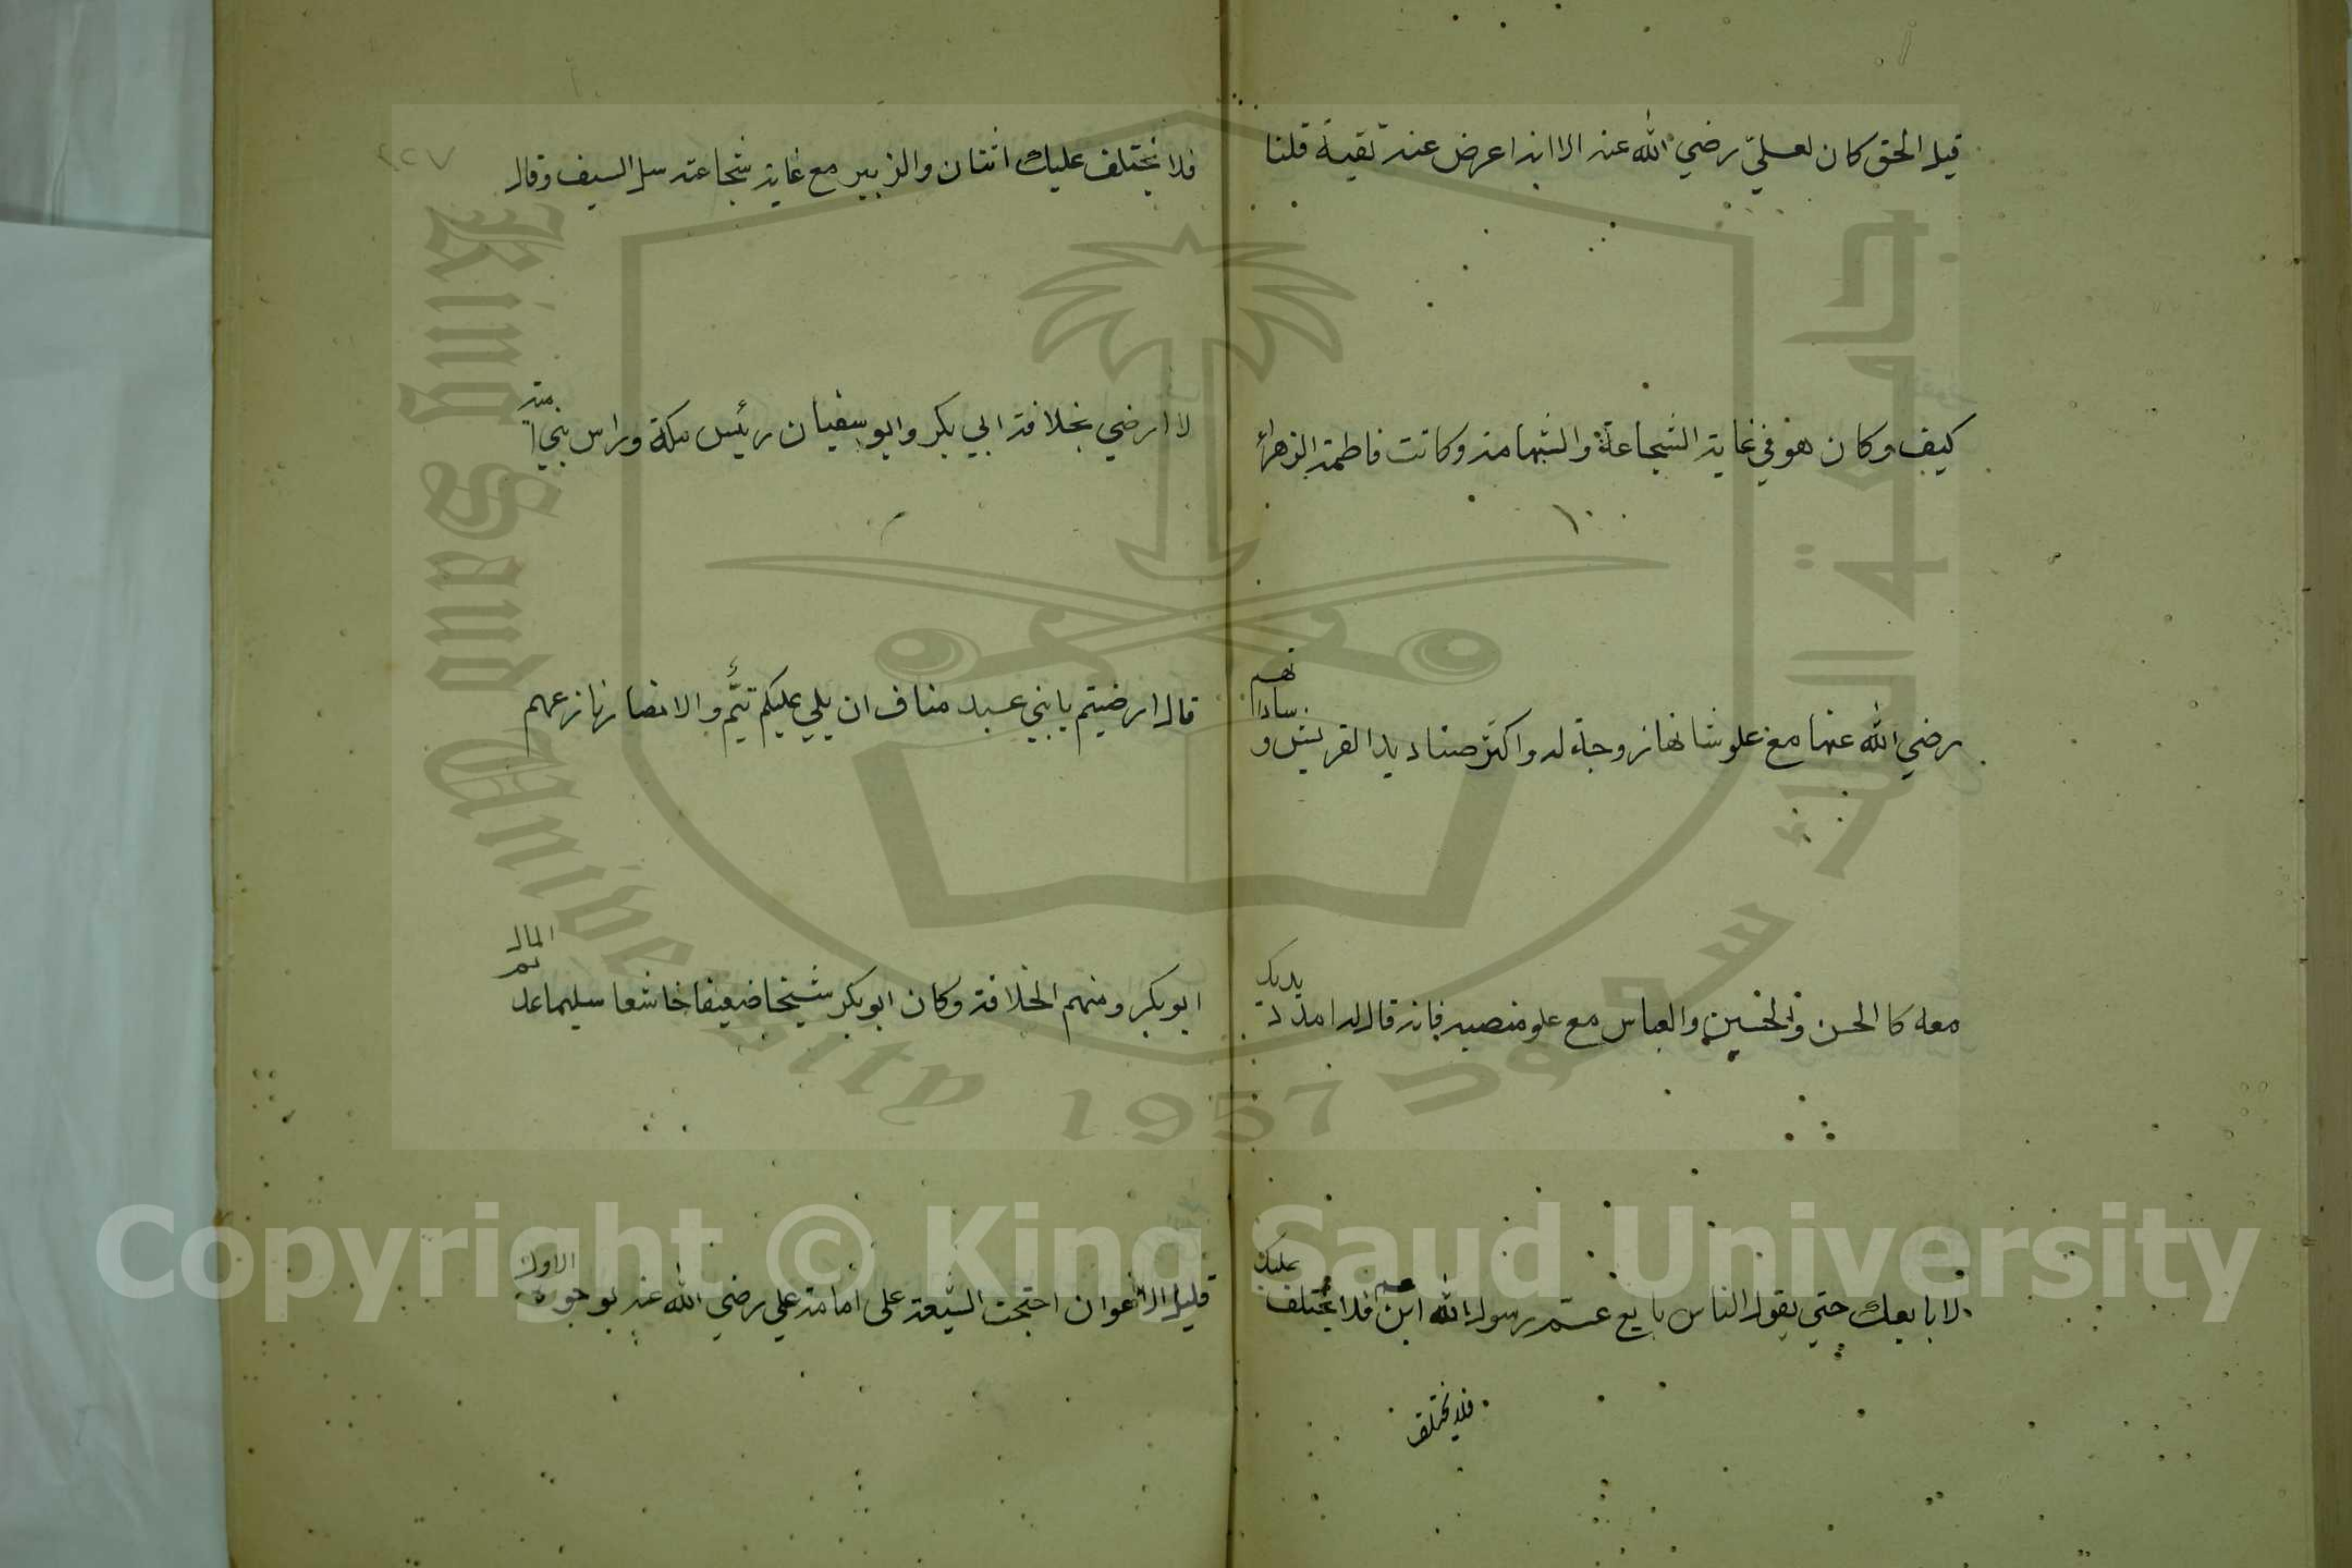 قيل الحق كان لعليّ رضي الله عنه الا انه اعرض عنه تقية قلنا
كيف وكان هو في غاية الشجاعة والشهامة وكانت فاطمة الزهراء
رضي الله عنها مع علو شانها زوجة له واكثر صناديد القريش و ساداتهم
معه كالحسن والحسين والعباس مع علو منصبه فانه قال له امدد يديك
لابايعك حتي يقول الناس بايع عم رسول الله ابن عم فلا يختلف عليك
فلا يختلف
٢٢٧
فلا يختلف عليك اثنان والزبير مع غاية شجاعته سل السيف وقال
لا ارضي بخلافة ابي بكر وابو سفيان رئيس مكة وراس بني امية
قال ارضيتم يا بني عبد مناف ان يلي عليكم تيم والانصار نازعهم
ابو بكر ومنهم الخلافة وكان ابو بكر شيخا ضعيفا خاشعا سليما عديم المال
قليل الاعوان احتجت الشيعة على امامة علي رضي الله عنه بوجوه الاول
Copyright © King Saud University
King Saud University 1957 جامعة الملك سعود